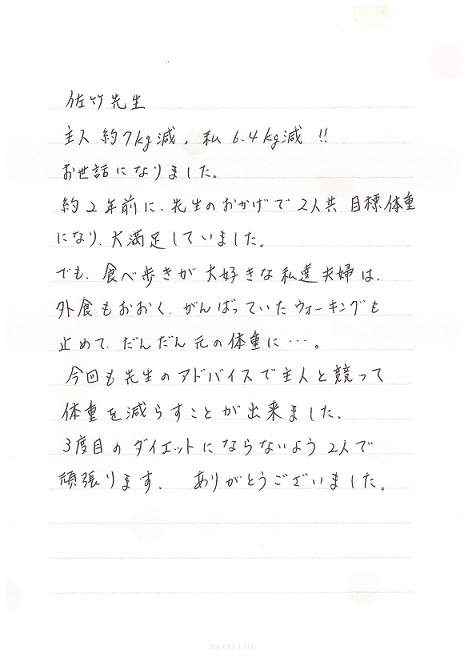 佐竹先生
主人 約7kg減、私 6.4kg減 !!
お世話になりました。
約2年前に、先生のおかげで2人共 目標体重
になり、大満足していました。
でも、食べ歩きが大好きな私達夫婦は、
外食もおおく、がんばっていたウォーキングも
止めて、だんだん元の体重に…。
今回も先生のアドバイスで主人と競って
体重を減らすことが出来ました。
3度目のダイエットにならないよう2人で
頑張ります。 ありがとうございました。